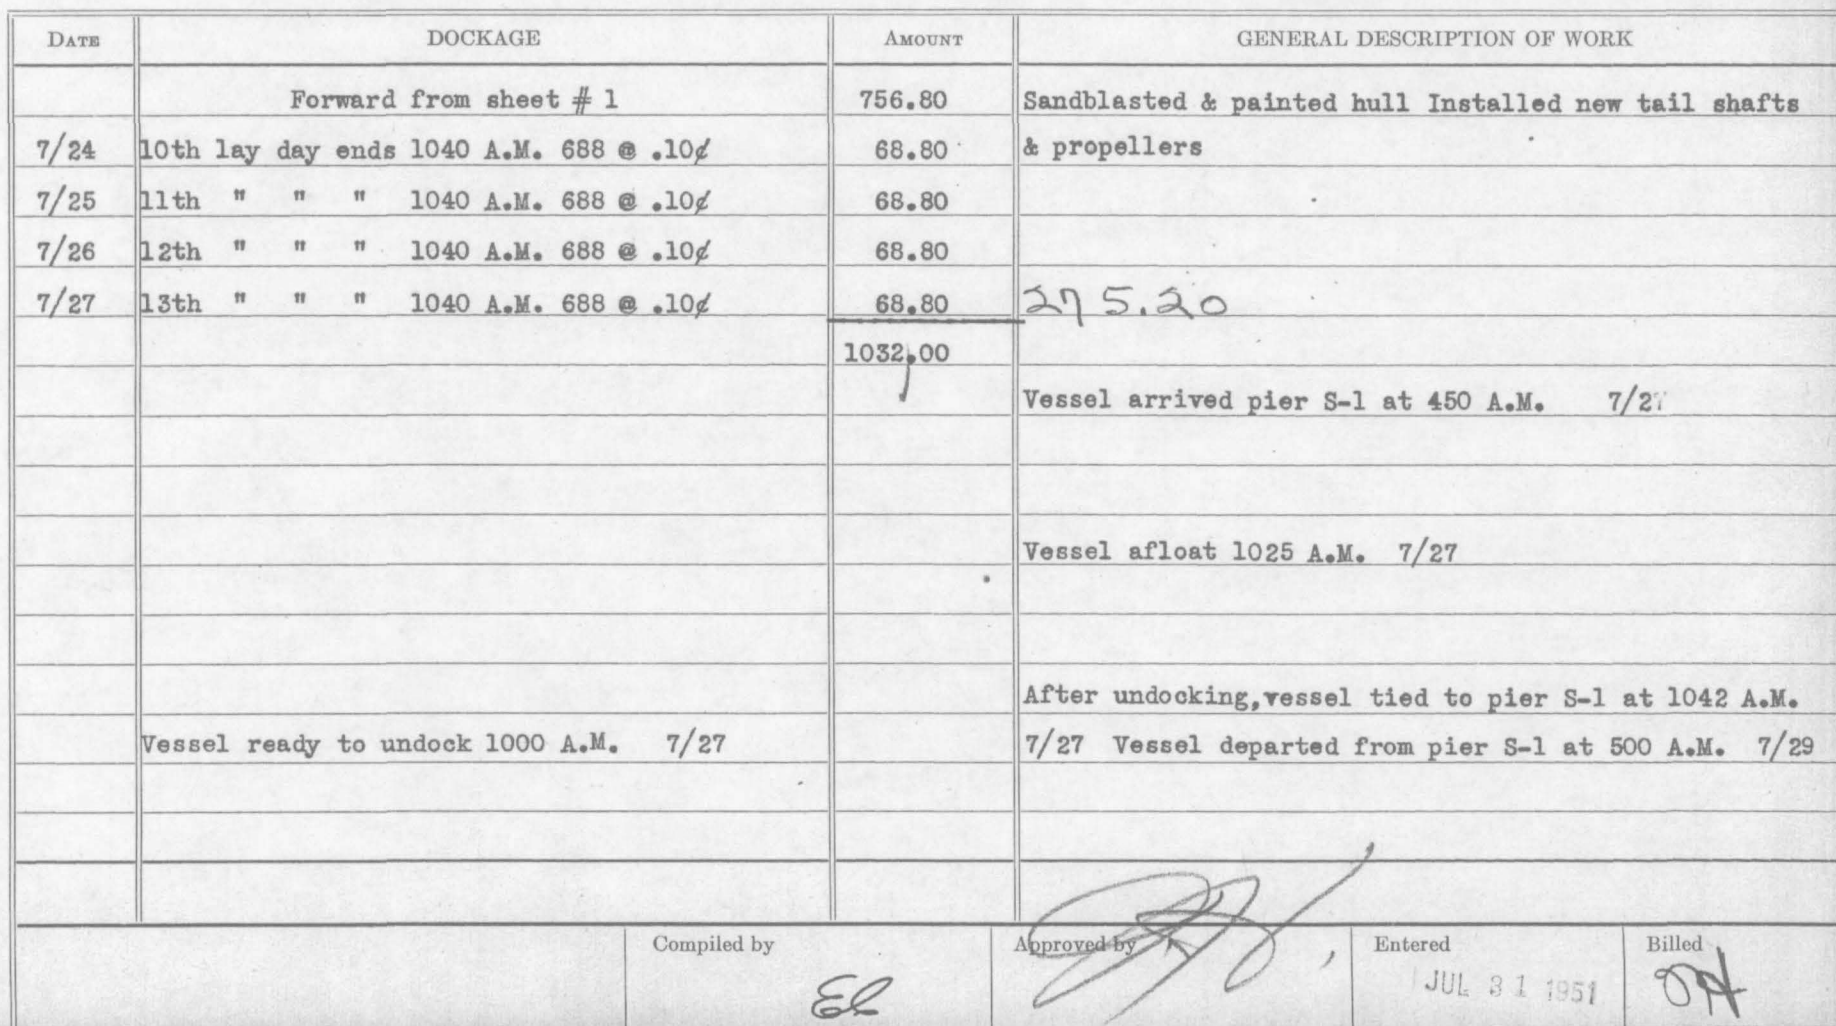 DATE DOCKAGE AMOUNT GENERAL DESCRIPTION OF WORK
Forward from sheet # 1 756.80 Sandblasted & painted hull Installed new tail shafts
7/24 10th lay day ends 1040 A.M. 688 @ .10¢ 68.80 & propellers
7/25 11th " " " 1040 A.M. 688 @ .10¢ 68.80
7/26 12th " " " 1040 A.M. 688 @ .10¢ 68.80
7/27 13th " " " 1040 A.M. 688 @ .10¢ 68.80 275.20
1032.00
Vessel arrived pier S-1 at 450 A.M. 7/27
Vessel afloat 1025 A.M. 7/27
After undocking,vessel tied to pier S-1 at 1042 A.M.
Vessel ready to undock 1000 A.M. 7/27 7/27 Vessel departed from pier S-1 at 500 A.M. 7/29
Compiled by Approved by Entered Billed
JUL 31 1951